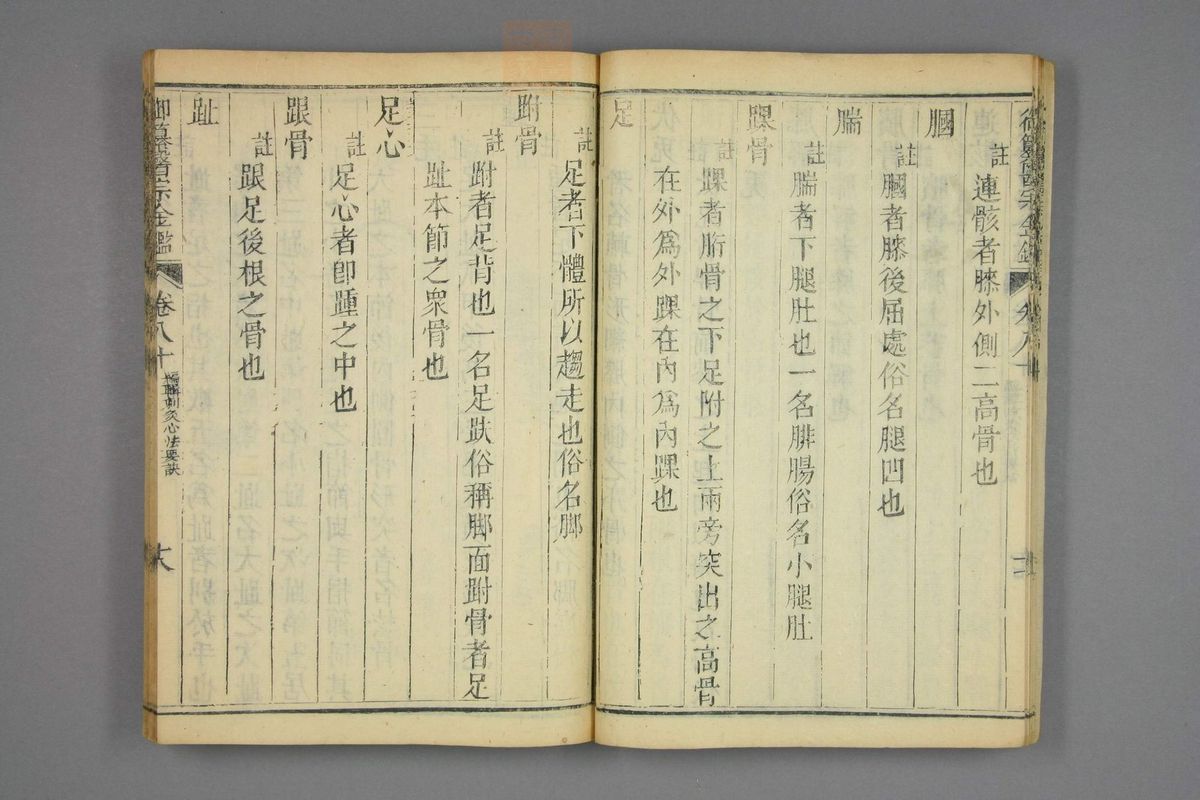 註連骸者膝外側二高骨也
膕
註膕者膝後屈處俗名腿凹也
腨
註腨者下腿肚也一名腓腸俗名小腿肚
踝骨
註踝者胻骨之下足跗之上兩旁突出之高骨
在外爲外踝在內爲內踝也
足
註足者下體所以趨走也俗名脚
跗骨
註跗者足背也一名足趺俗稱脚面跗骨者足
趾本節之衆骨也
足心
註足心者卽踵之中也
跟骨
註跟足後根之骨也
趾
御纂醫宗金鑑 卷八十 刺灸心法要訣